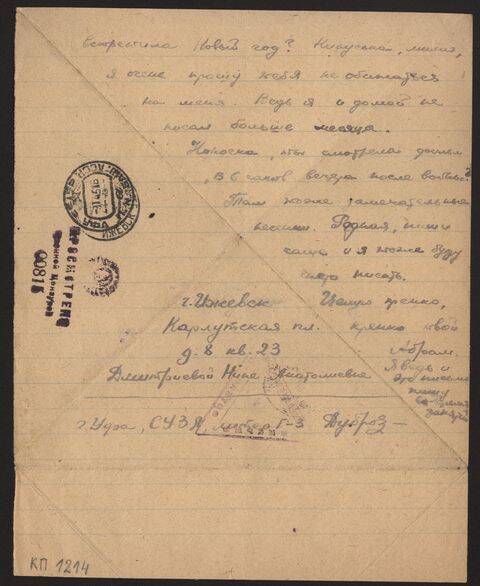 встретила Новый год? Нинуська, милая,
я очень прошу тебя не обижаться
на меня. Ведь я и домой не
писал больше месяца.
Ниночка, ты смотрела фильм
„В 6 часов вечера после войны"?
Там тоже замечательные
песенки. Родная, пиши
чаще и я тоже буду
часто писать.
Целую крепко,
крепко твой
Абрам.
Я ведь и
это письмо
пишу
г. Ижевск
Карлутская пл.
д. 8 кв. 23
Дмитриевой Нине Анатолиевне
г. Уфа, СУЗЯ, литер Г-3
ПРОСМОТРЕНО
Военной Цензурой
00815
ИЖЕВСК
КП 1214